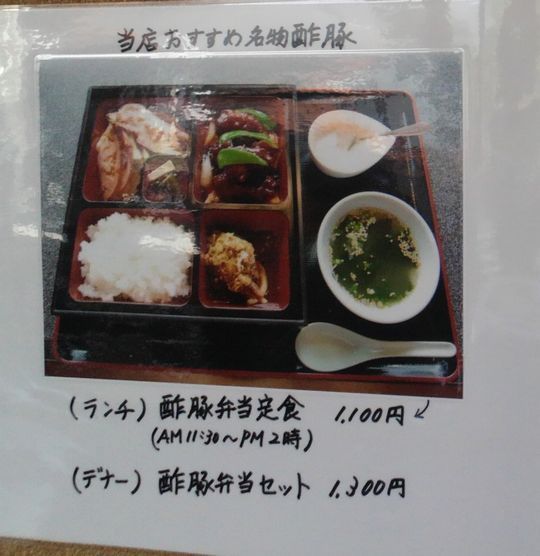 当店おすすめ名物酢豚
(ランチ) 酢豚弁当定食 1,100円
(AM11:30〜PM2時)
(デナー) 酢豚弁当セット 1,300円